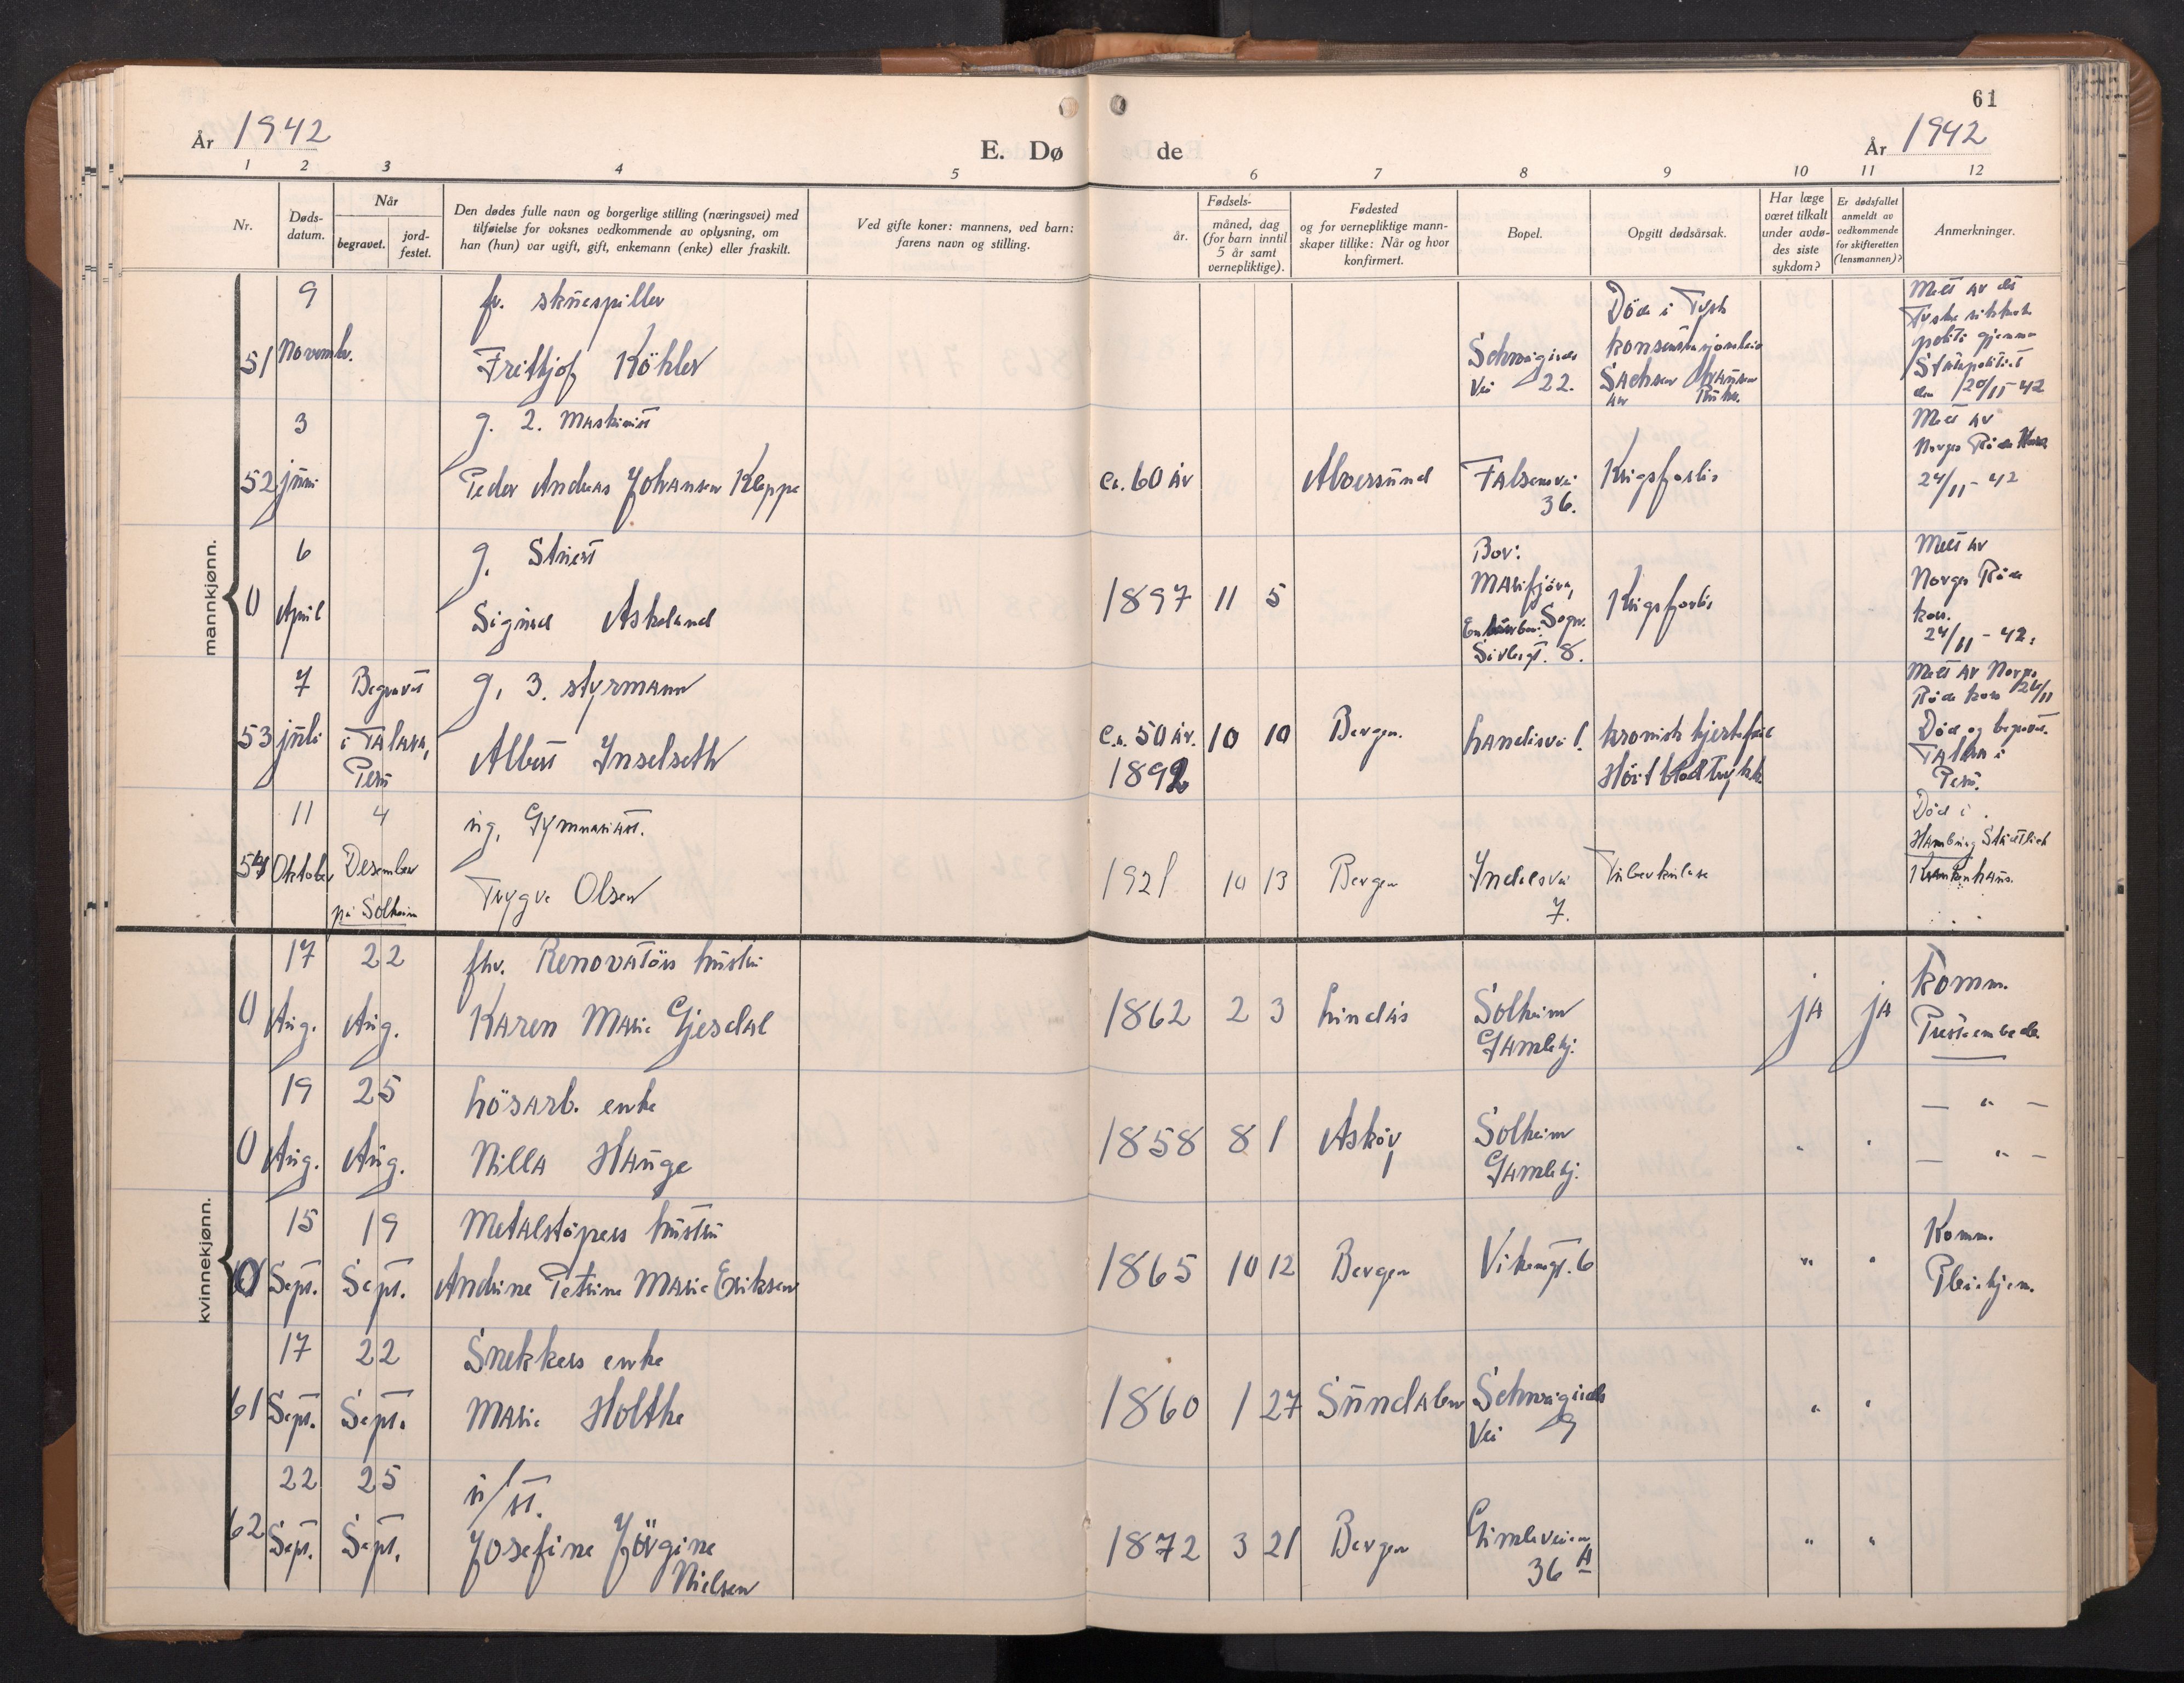 61
År 1942
E. Dø de
År 1942
1 2 3 4 5 6 7 8 9 10 11 12
Nr.
Døds-
datum.
Når
begravet.
jord-
festet.
Den dødes fulle navn og borgerlige stilling (næringsvei) med
tilføielse for voksnes vedkommende av oplysning, om
han (hun) var ugift, gift, enkemann (enke) eller fraskilt.
Ved gifte koner: mannens, ved barn:
farens navn og stilling.
Fødsels-
år.
måned, dag
(for barn inntil
5 år samt
vernepliktige).
Fødested
og for vernepliktige mann-
skaper tillike: Når og hvor
konfirmert.
Bopel.
Opgitt dødsårsak.
Har læge
været tilkalt
under avdø-
des siste
sykdom?
Er dødsfallet
anmeldt av
vedkommende
for skifteretten
(lensmannen)?
Anmerkninger.
mannkjønn.
51
9
Novemb.
fr. skuespiller
Frithjof Köhler
Schweigårds
Vei 22.
Död i Tysk
konsentrasjonsleir
Sachsenhausen
Meld av det
Tyske sikkerhets
politi gjennem
Statspolitiet
den 20/11-42
52
3
juni
g. 2. Maskinist
Peder Andreas Johansen Kleppe
Ca. 60 år
Alversund
Falsensvei
36.
Krigsforlis
Meld av
Norges Röde Kors
24/11-42
0
6
April
g. Stuert
Sigurd Askeland
1897 11 5
Bor:
Marifjöra,
Sogn.
8.
Krigsforlis
Meld av
Norges Röde
kors.
24/11-42.
53
7
juli
Begravet
i Talara,
Peru
g. 3. styrmann
Albert Ynselseth
Ca. 50 år.
1892
10 10
Bergen.
Landåsvei 1.
kronisk hjertefeil
Höit blodtrykk
Meld av Norges
Röde kors 24/11
Död og begravet.
Talara i
Peru.
54
11
Oktober
4
Desember
på Solheim
ug. Gymnasiast.
Trygve Olsen
1921 10 13
Bergen
Yndalsvei
7.
Tuberkulose
Död i
Hamburg Städtlich
Krankenhaus.
kvinnekjønn.
0
17
Aug.
22
Aug.
fhv. Renovatörs hustru
Karen Marie Gjesdal
1862 2 3
Lindås
Solheim
Gamlehj.
ja
ja
komm.
Presteembede.
0
19
Aug.
25
Aug.
Lösarb. enke
Nilla Hauge
1858 8 1
Asköy
Solheim
Gamlehj.
"
"
— " —
— " —
0
15
Sept.
19
Sept.
Metalstöpers hustru
Andrine Petrine Marie Eriksen
1865 10 12
Bergen
Vikengt. 6
"
"
Komm.
Pleiehjem.
61
17
Sept.
22
Sept.
Snekkers enke
Marie Holthe
1860 1 27
Sundalen
Schweigårds
Vei 9
"
"
62
22
Sept.
25
Sept.
u/st.
Josefine Jörgine
Nielsen
1872 3 21
Bergen
Gimleveien
36 A
"
"